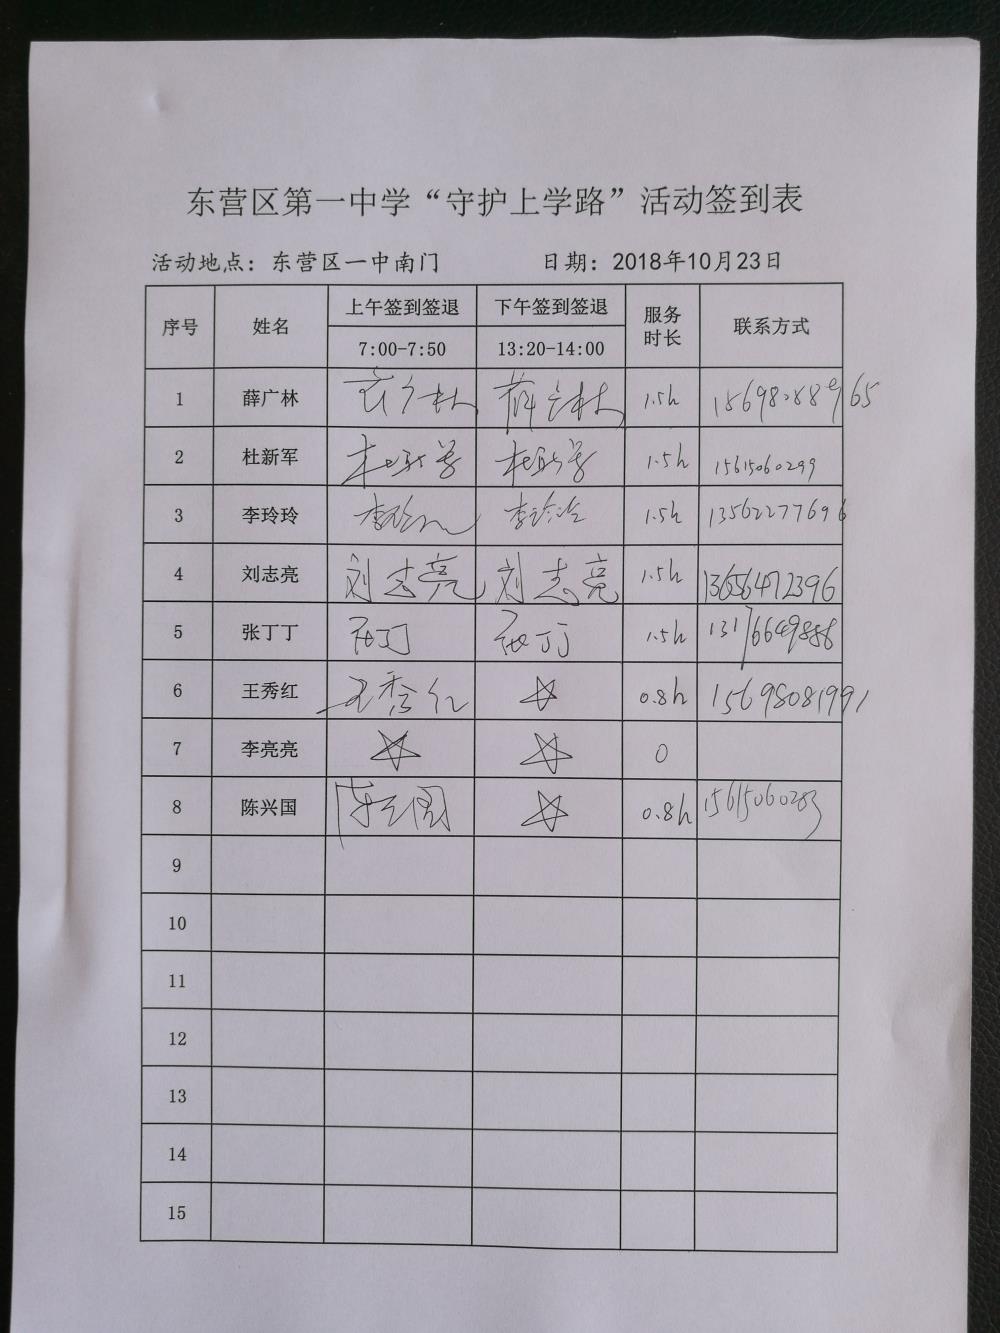 东营区第一中学“守护上学路”活动签到表
活动地点：东营区一中南门 日期：2018年10月23日
序号 姓名 上午签到签退 下午签到签退 服务时长 联系方式
7:00-7:50 13:20-14:00
1 薛广林 薛广林 薛广林 1.5h
2 杜新军 杜新军 杜新军 1.5h 15615060299
3 李玲玲 李玲玲 李玲玲 1.5h 13562277696
4 刘志亮 刘志亮 刘志亮 1.5h 13656472396
5 张丁丁 张丁丁 张丁丁 1.5h 13176649888
6 王秀红 王秀红 ☆ 0.8h 15698081991
7 李亮亮 ☆ ☆ 0
8 陈兴国 陈兴国 ☆ 0.8h 15615060283
9
10
11
12
13
14
15